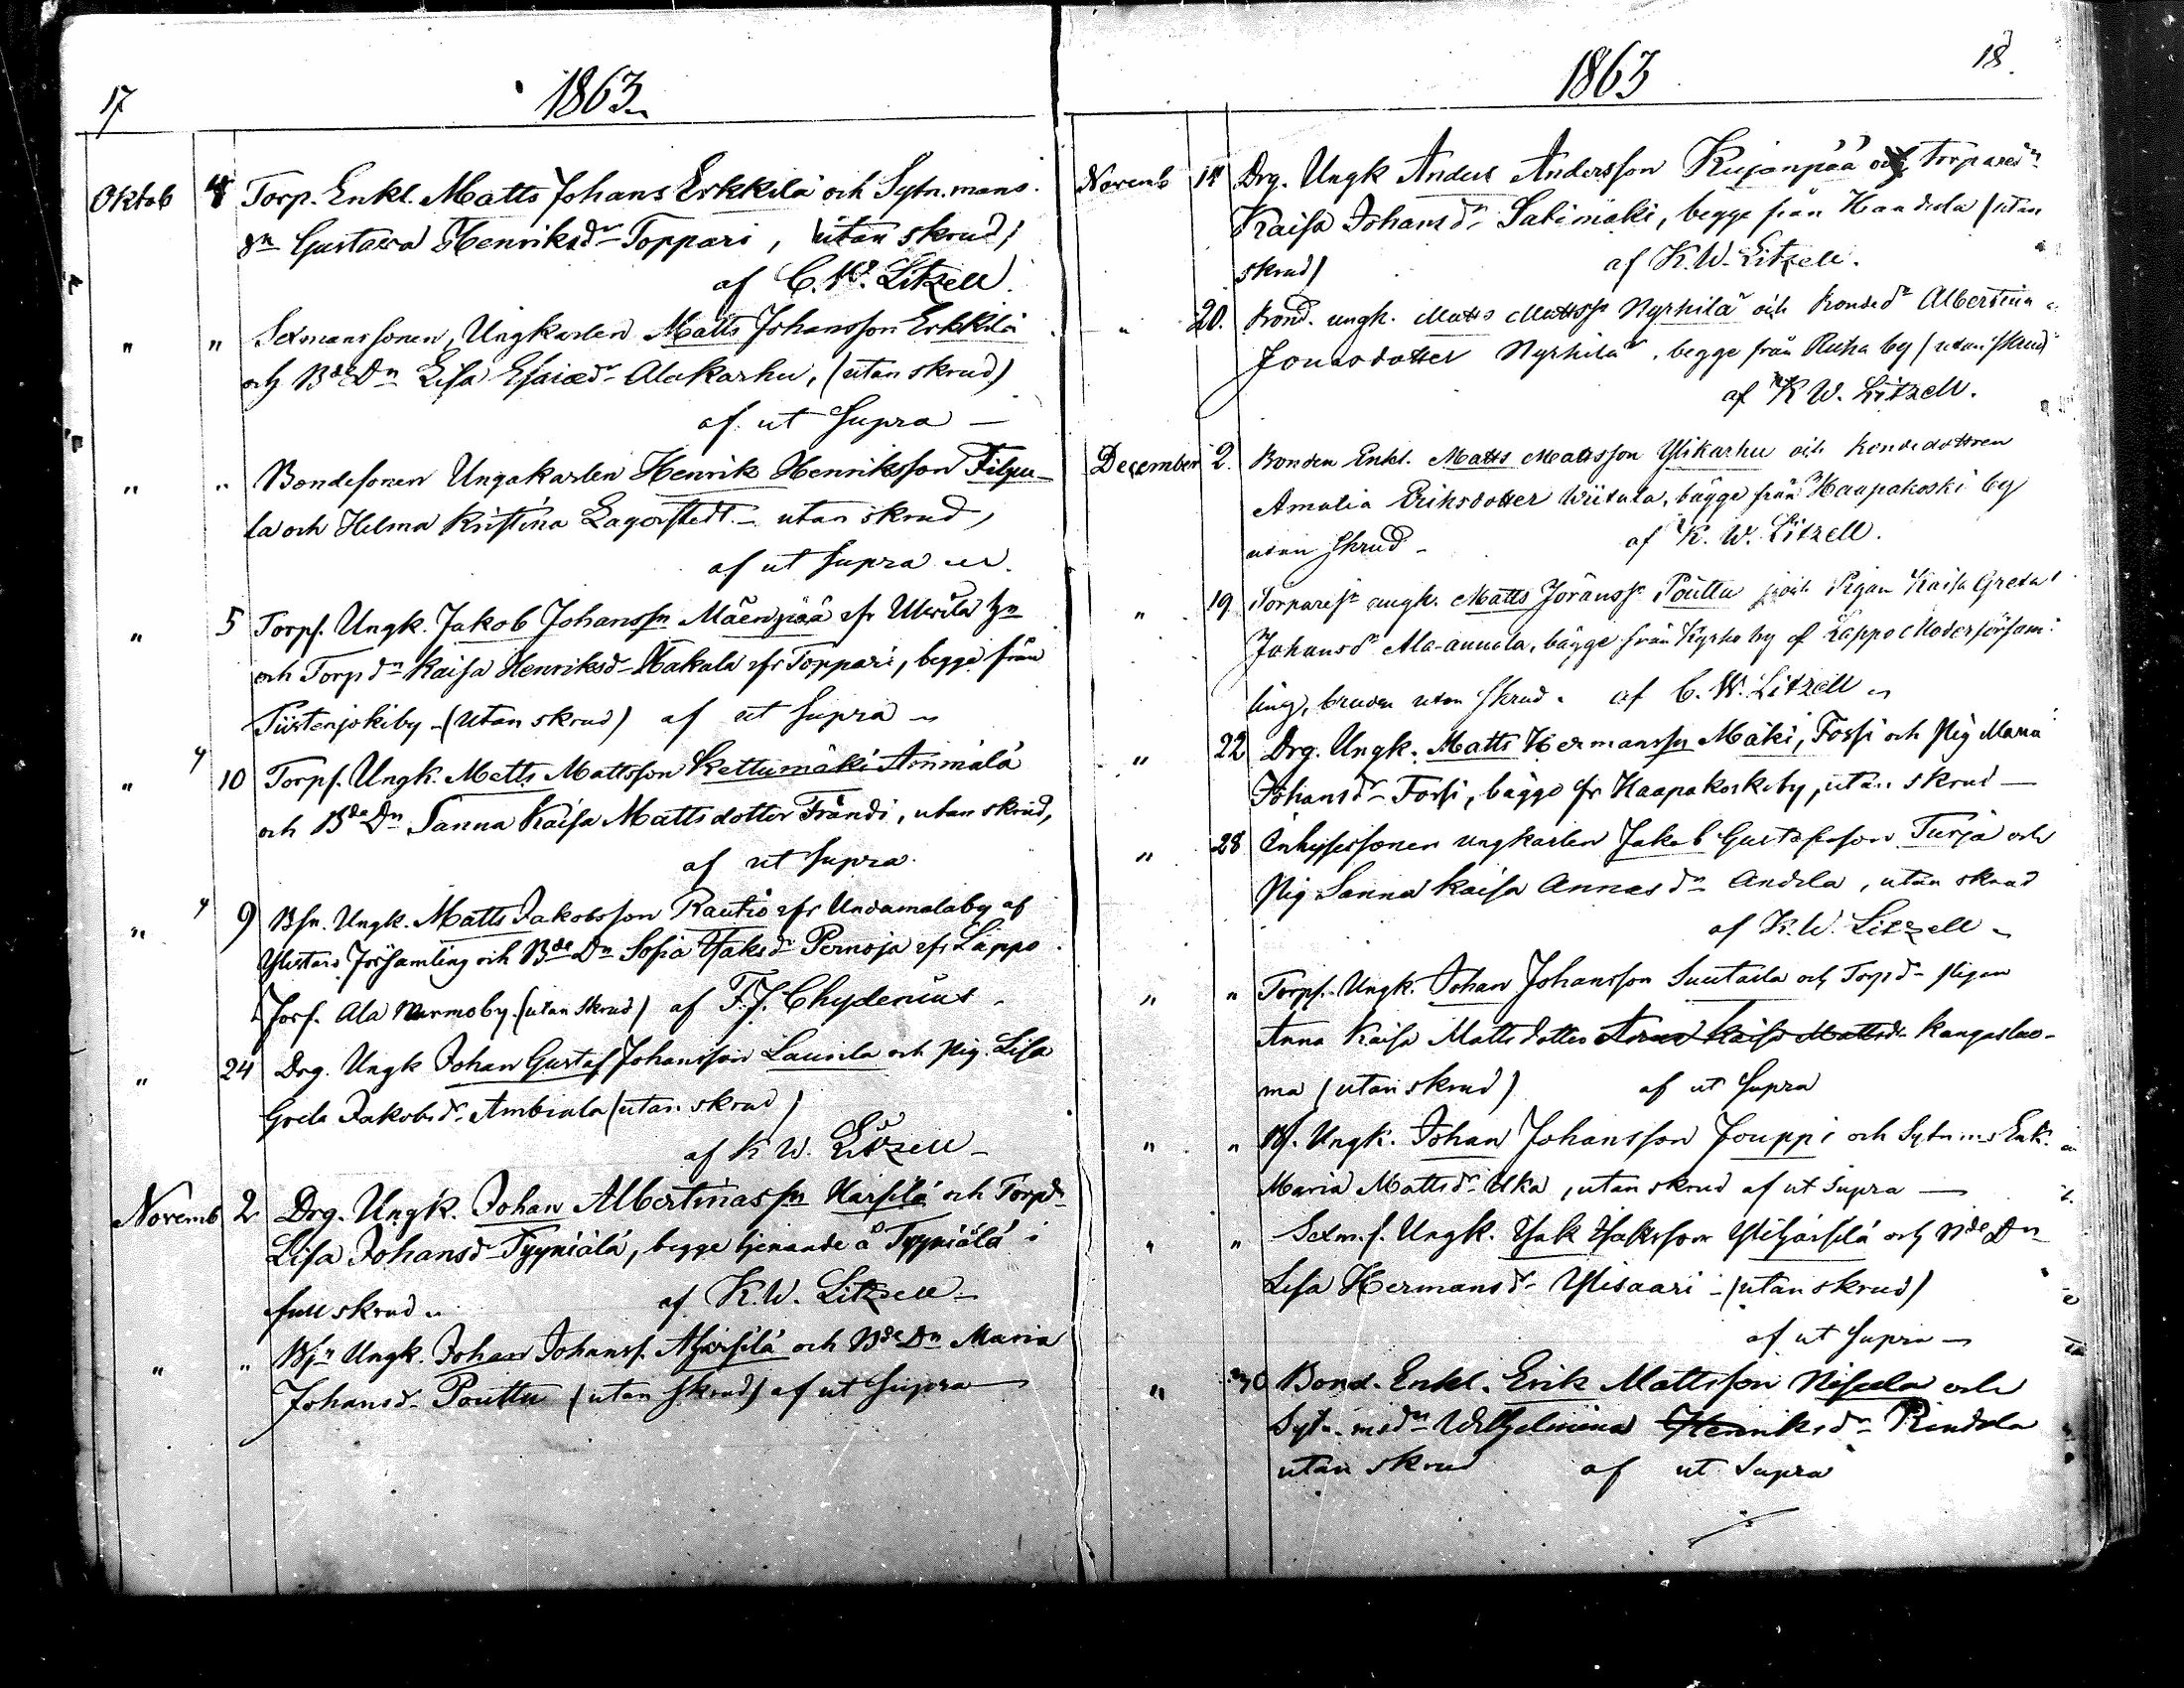 17
1863
Oktob 4 Torp. Enkl. Matts Johans Erkkilä och Sytn. mans
dn Gustava Henriksdr Toppari, utan skrud,
af C. W. Litzell.
" " Sexmanssonen, Ungkarlen Matts Johansson Erkkilä
och Bde Dn Lisa Esaiædr Alakarhu, (utan skrud)
af ut Supra
" " Bondesonen Ungakarlen Henrik Henriksson Filpu-
la och Helma Kristina Lagerstedt utan skrud,
af ut Supra
" 5 Torps. Ungk. Jakob Johanssn Mäenpää fr
och Torpdn Kaisa Henriksdr Kakala fr Toppari, begge från
Tiistenjokiby (utan skrud) af ut Supra
" 10 Torps. Ungk. Matts Mattsson Kettumäki Ammälä
och Bde Dn Sanna Kaisa Mattsdotter Frändi, utan skrud,
af ut Supra.
" 9 Bsn. Ungk. Matts Jakobsson Rautio fr Undamalaby af
Ylistaro Församling och Bde Dn Sofia Isaksdr Pernaja fr Lappo
Förs. Ala Nurmoby. (utan skrud) af F. J. Chydenius
" 24 Drg. Ungk Johan Gustaf Johansson Laurila och Pig. Lisa
Greta Jakobsdr Ambriala (utan skrud)
af K W. Litzell
Novemb 2 Drg. Ungk. Johan Albertinassn Harsilä och Torpdr
Lisa Johansd Tyyniälä, begge tjenande å Tyyniälä i
full skrud af K. W. Litzell
" " Bsn Ungk. Johan Johanss. och Bde Dn Maria
Johansd Pouttu (utan skrud) af ut Supra
1863
18.
Novemb 14 Drg. Ungk Anders Andersson Kujanpää och Torparedr
Kaisa Johansdr Salimäki, begge från Haudala (utan
skrud) af K. W. Litzell.
" 20. Bond. ungk. Matts Mattssn Nyrhilä och Bondedr Albertina
Jonasdotter Nyrhilä, begge från Ruha by (utan skrud)
af K W. Litzell.
December 2. Bonden Enkl. Matts Mattsson Ylikarhu och bondedottren
Amalia Eriksdotter Wiitala, bägge från Haapakoski by
utan skrud af K. W. Litzell.
" 19 Torparesn ungk. Matts Joranssn Pouttu och Pigan Kaisa Greta
Johansdr Ala-annala, bägge från Kyrko by af Lappo Moderförsam-
ling, bruden utan skrud. af C. W. Litzell
" 22 Drg. Ungk. Matts Hermanssn Mäki, Forsi och Pig Maria
Johansdr Forsi, bägge fr Haapakoskiby, utan skrud
" 28 Inhysessonen ungkarlen Jakob Gustafsson Turja och
Pig Sanna Kaisa Annasdr Andila, utan skrud
af K. W. Litzell
" " Torps. Ungk. Johan Johansson Luutaila och Torpdr pigan
Anna Kaisa Mattsdotter Anna Kaisa Mattsdr Kangasluo-
ma (utan skrud) af ut Supra
" " Bs. Ungk. Johan Johansson Jouppi och Sytnms Enk.
Maria Mattsdr Uka, utan skrud af ut Supra
" " Sexm. s. Ungk. Isak Isaksson Ylihärsilä och Bde Dn
Lisa Hermansdr Ylisaari (utan skrud)
af ut Supra
" 30 Bond. Enkl. Erik Mattsson Nisula och
Sytn. msdr Wilhelmina Henriksdr Rindala
utan skrud af ut Supra